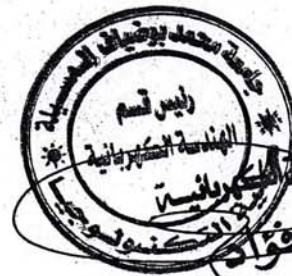 جامعة محمد بوضياف المسيلة
رئيس قسم
الهندسة الكهربائية
الكهربائية
التكنولوجيا
فؤاد